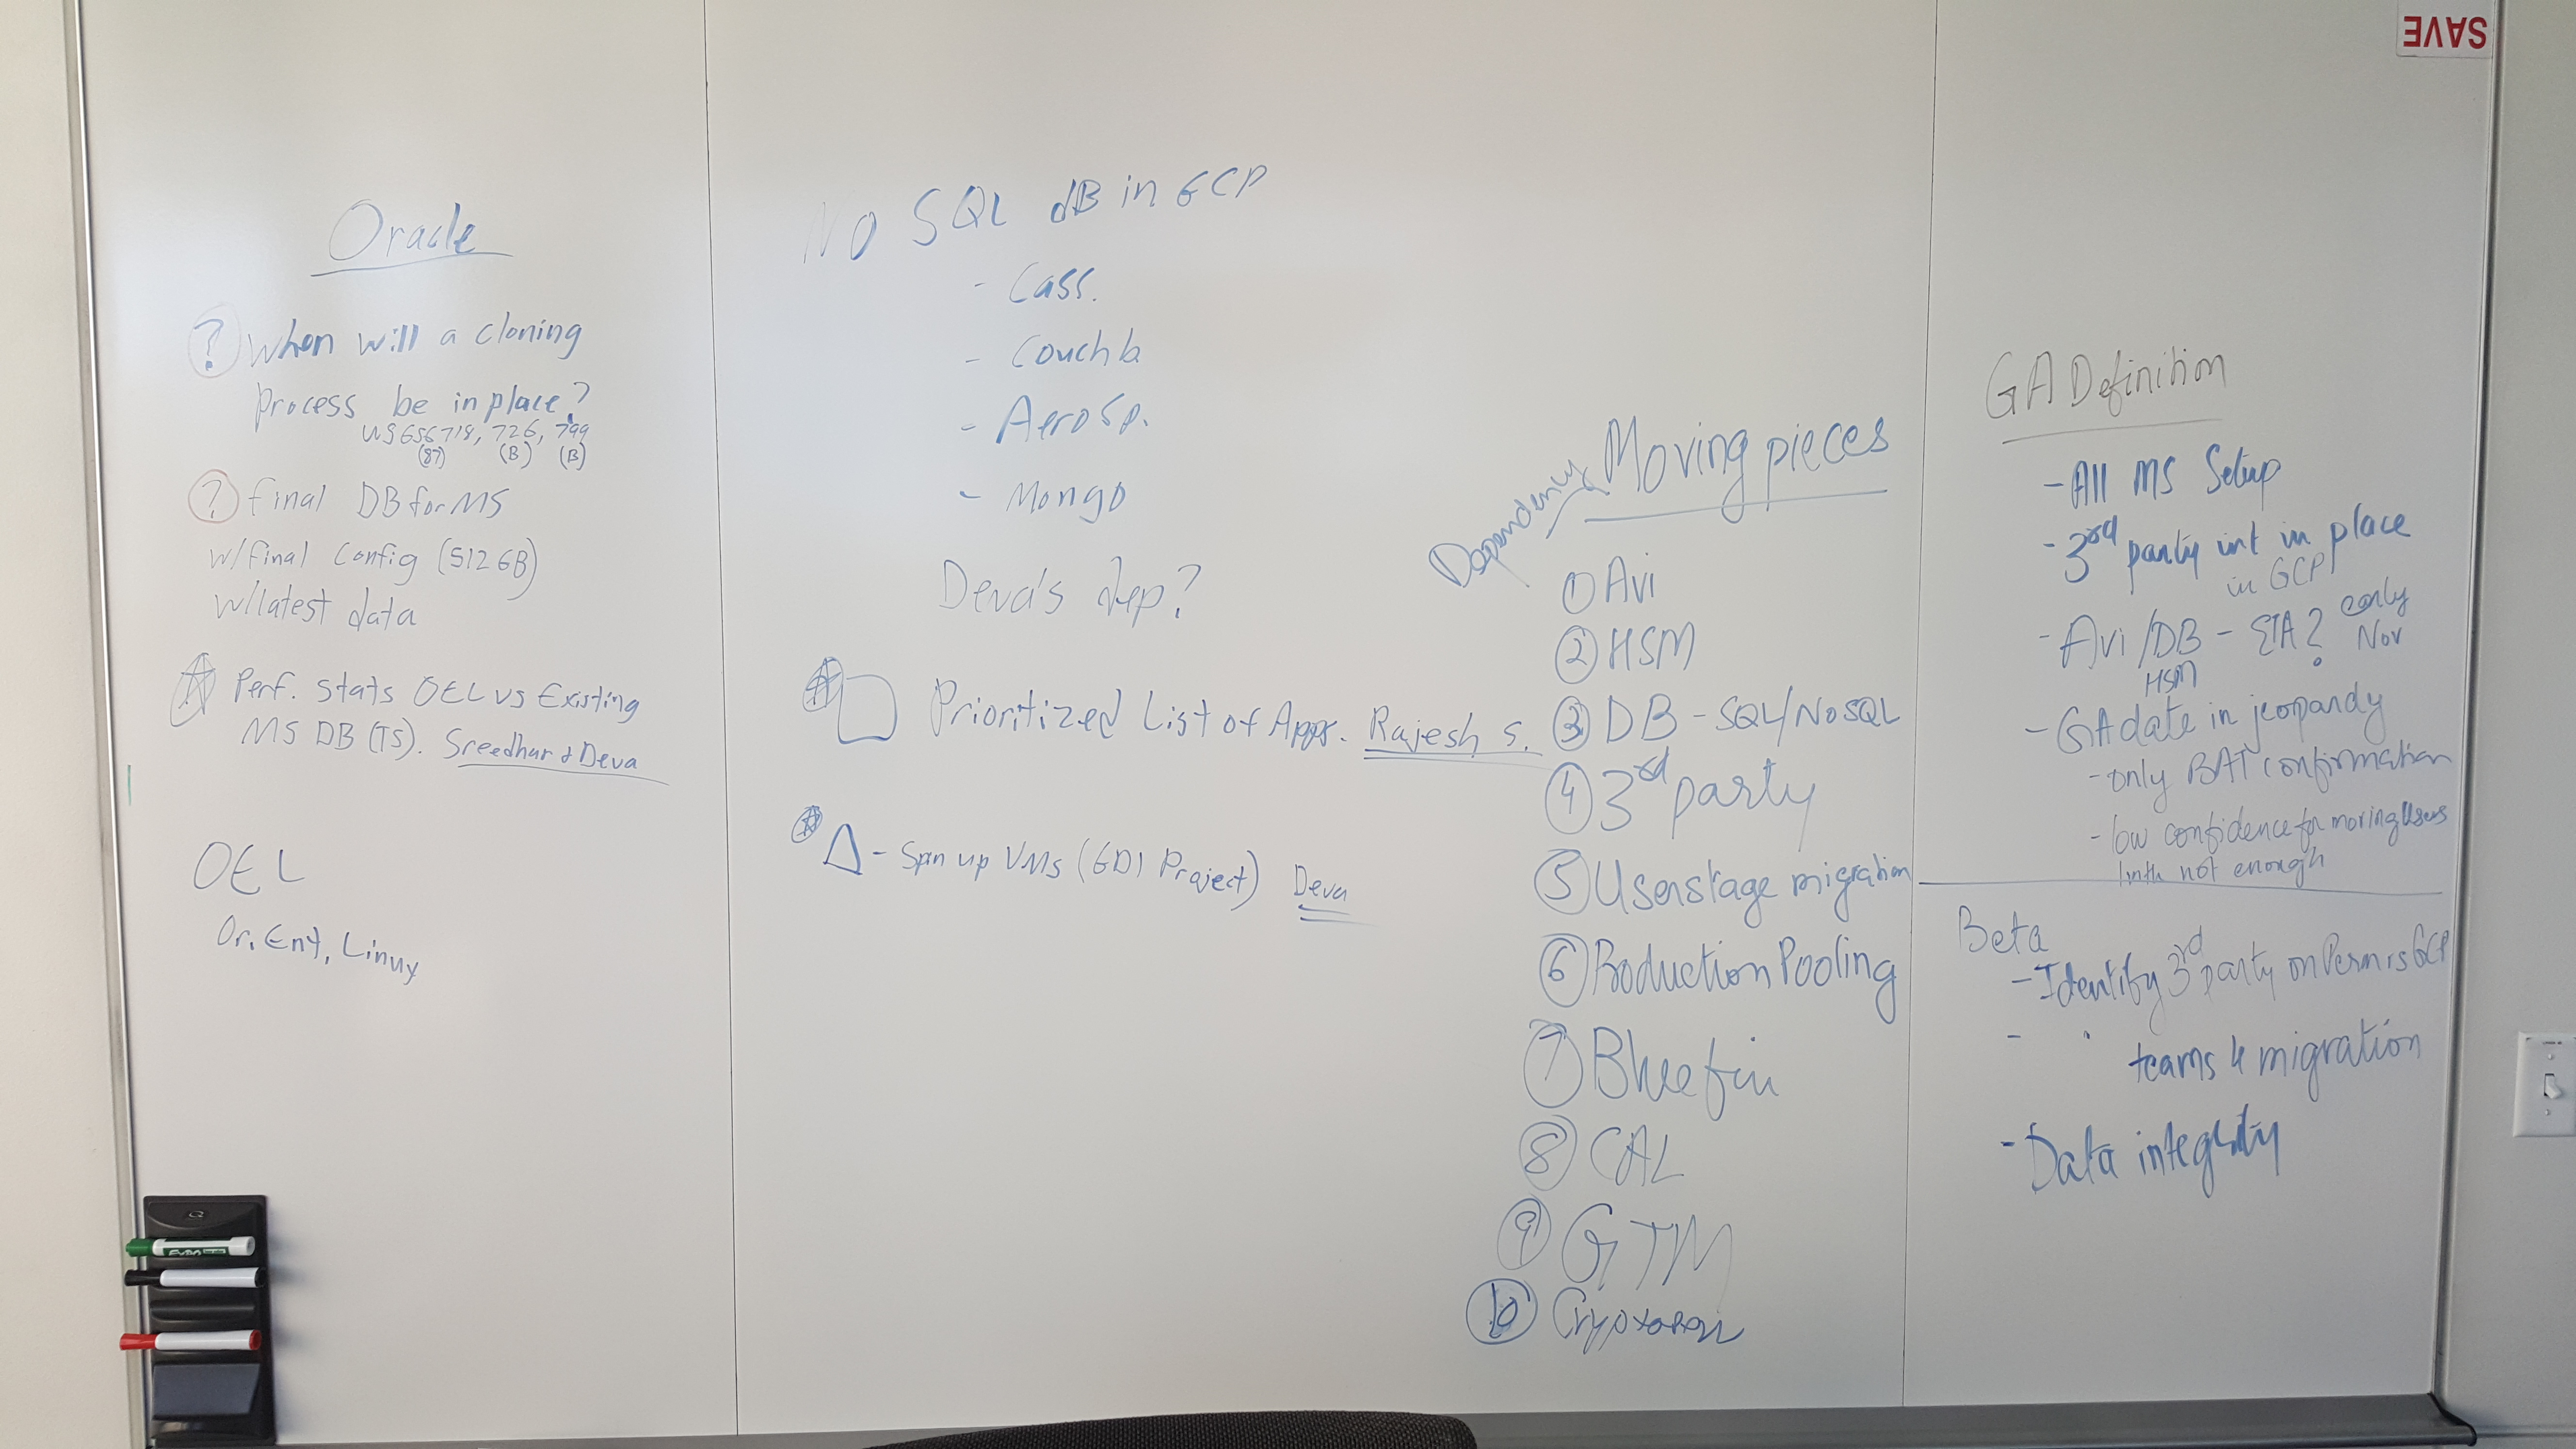 SAVE
Oracle
? When will a cloning
process be in place?
US656718, 726, 799
(87) (B) (B)
? final DB for MS
w/final config (512GB)
w/latest data
Perf. Stats OEL vs Existing
MS DB (TS). Sreedhar & Deva
OEL
Or. Ent, Linux
NO SQL dB in GCP
- Cass.
- Couch b.
- AeroSp.
- Mongo
Deva's dep?
Prioritized List of Apps. Rajesh S.
Δ - Spin up VMs (GDI Project) Deva
Dependency
Moving pieces
① Avi
② HSM
③ DB - SQL/NoSQL
④ 3rd party
⑤ Userstage migration
⑥ Production Pooling
⑦ Bluefin
⑧ CAL
⑨ GTM
⑩
GA Definition
- All MS Setup
- 3rd party int in place
in GCP
- Avi /DB - ETA? early
HSM Nov
- GA date in jeopardy
- only BAT confirmation
- low confidence for moving Users
1mth not enough
Beta
- Identify 3rd party onPerm is GCP
- "
teams 4 migration
- Data integrity